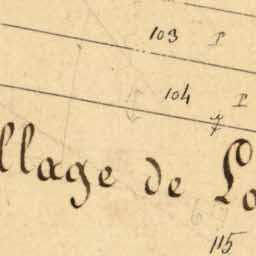 103 P
104 P
llage de La
115